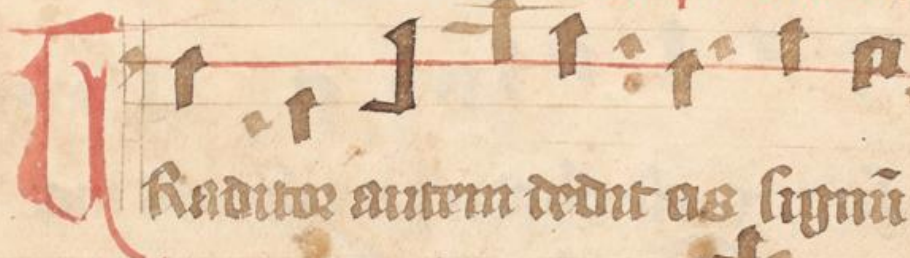 TRaditor autem dedit eis signū